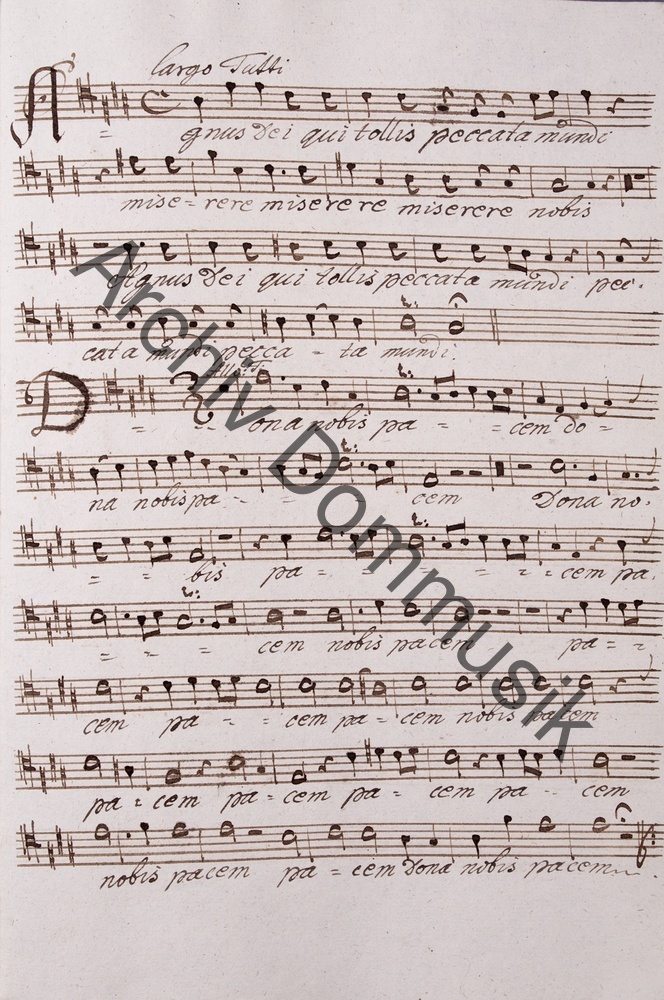 largo Tutti
Agnus Dei qui tollis peccata mundi
mise=rere miserere miserere nobis
Agnus Dei qui tollis peccata mundi pec-
cata mundi pecca = ta mundi.
Dona nobis pa = = cem do =
na nobis pa = = cem Dona no-
= = bis pa = = = = = = cem pa.
= = = = cem nobis pacem pa = =
cem pa = = cem pa = cem nobis pacem
pa = cem pa = cem pa = cem pa = cem
nobis pacem pa = cem Dona nobis pacem
Archiv Dommusik